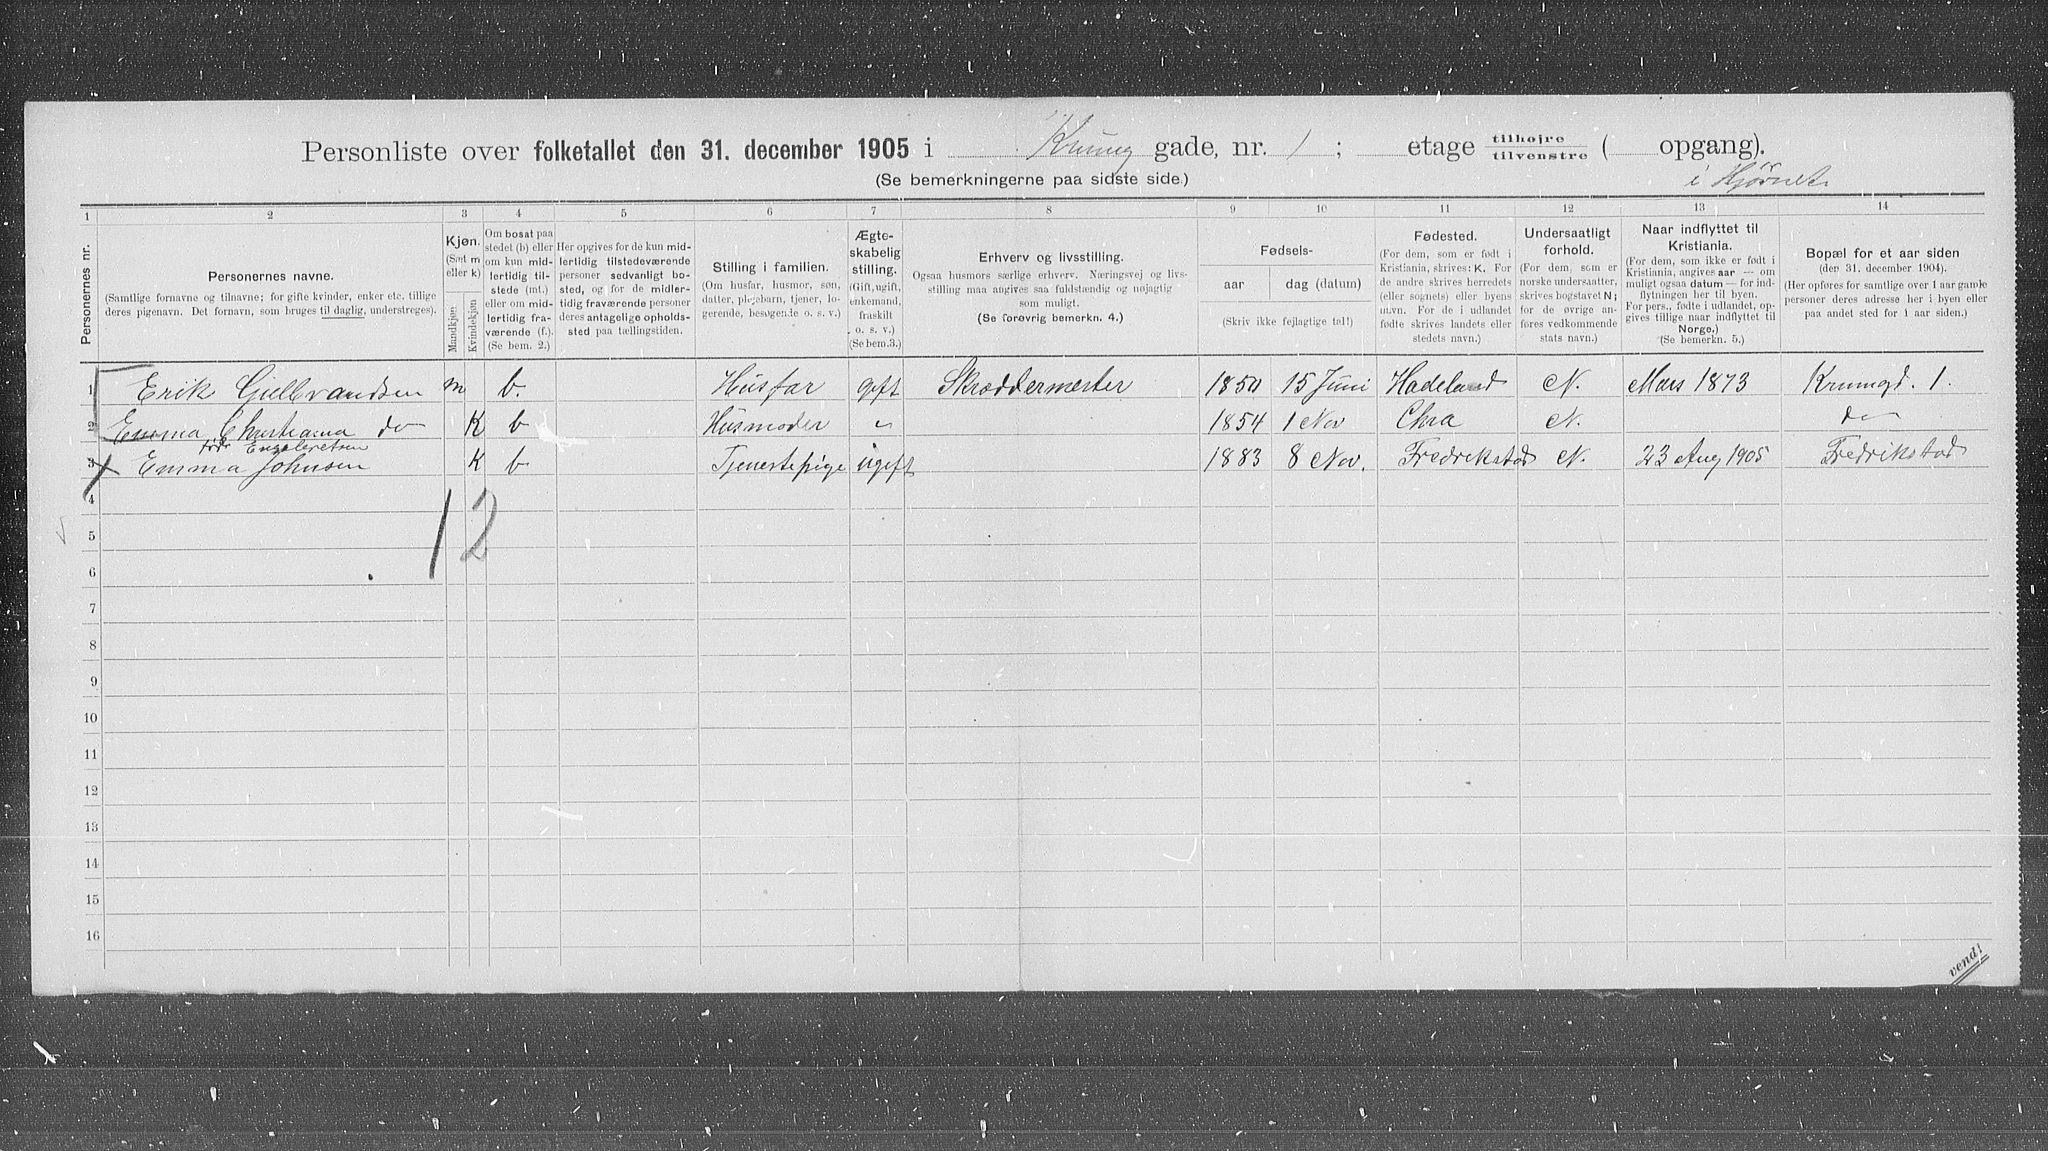 Personliste over folketallet den 31. december 1905 i Krumg gade, nr. 1 ; etage tilhøjre tilvenstre ( opgang).
(Se bemerkningerne paa sidste side.)
i Hjørnet.
1 2 3 4 5 6 7 8 9 10 11 12 13 14
Personernes nr.
Personernes navne.
(Samtlige fornavne og tilnavne; for gifte kvinder, enker etc. tillige
deres pigenavn. Det fornavn, som bruges til daglig, understreges).
Kjøn.
(Sæt m
eller k)
Mandkjøn
Kvindekjøn
Om bosat paa
stedet (b) eller
om kun mid-
lertidig til-
stede (mt.)
eller om mid-
lertidig fra-
værende (f.).
(Se bem. 2.)
Her opgives for de kun mid-
lertidig tilstedeværende
personer sedvanligt bo-
sted, og for de midler-
tidig fraværende personer
deres antagelige opholds-
sted paa tællingstiden.
Stilling i familien.
(Om husfar, husmor, søn,
datter, plejebarn, tjener, lo-
gerende, besøgende o. s. v.)
Ægte-
skabelig
stilling.
(Gift, ugift,
enkemand,
fraskilt
o. s. v.)
(Se bem.3.)
Erhverv og livsstilling.
Ogsaa husmors særlige erhverv. Næringsvej og livs-
stilling maa angives saa fuldstændig og nøjagtig
som muligt.
(Se forøvrig bemerkn. 4.)
Fødsels-
aar dag (datum)
(Skriv ikke fejlagtige tal!)
Fødested.
(For dem, som er født i
Kristiania, skrives: K. For
de andre skrives herredets
(eller sognets) eller byens
navn. For de i udlandet
fødte skrives landets eller
stedets navn.)
Undersaatligt
forhold.
(For dem, som er
norske undersaatter,
skrives bogstavet N;
for de øvrige an-
føres vedkommende
stats navn.)
Naar indflyttet til
Kristiania.
(For dem, som ikke er født i
Kristiania, angives aar — om
muligt ogsaa datum — for ind-
flytningen her til byen.
For pers., fødte i udlandet, op-
gives tillige naar indflyttet til
Norge.)
(Se bemerkn. 5.)
Bopæl for et aar siden
(den 31. december 1904).
(Her opføres for samtlige over 1 aar gamle
personer deres adresse her i byen eller
paa andet sted for 1 aar siden.)
1 Erik Gulbrandsen m b. Husfar gift Skræddermester 1850 15 Juni Hadeland N. Mars 1873 Krumgd. 1.
2 Emma Christiana do K b Husmoder " 1854 1 Nov Chra N. do
født Engebretsen
3 Emma Johnsen K b Tjenestepige ugift 1883 8 Nov. Fredrikstad N. 23 Aug 1905 Fredrikstad
4
1 2
5
6
7
8
9
10
11
12
13
14
15
16
vend!